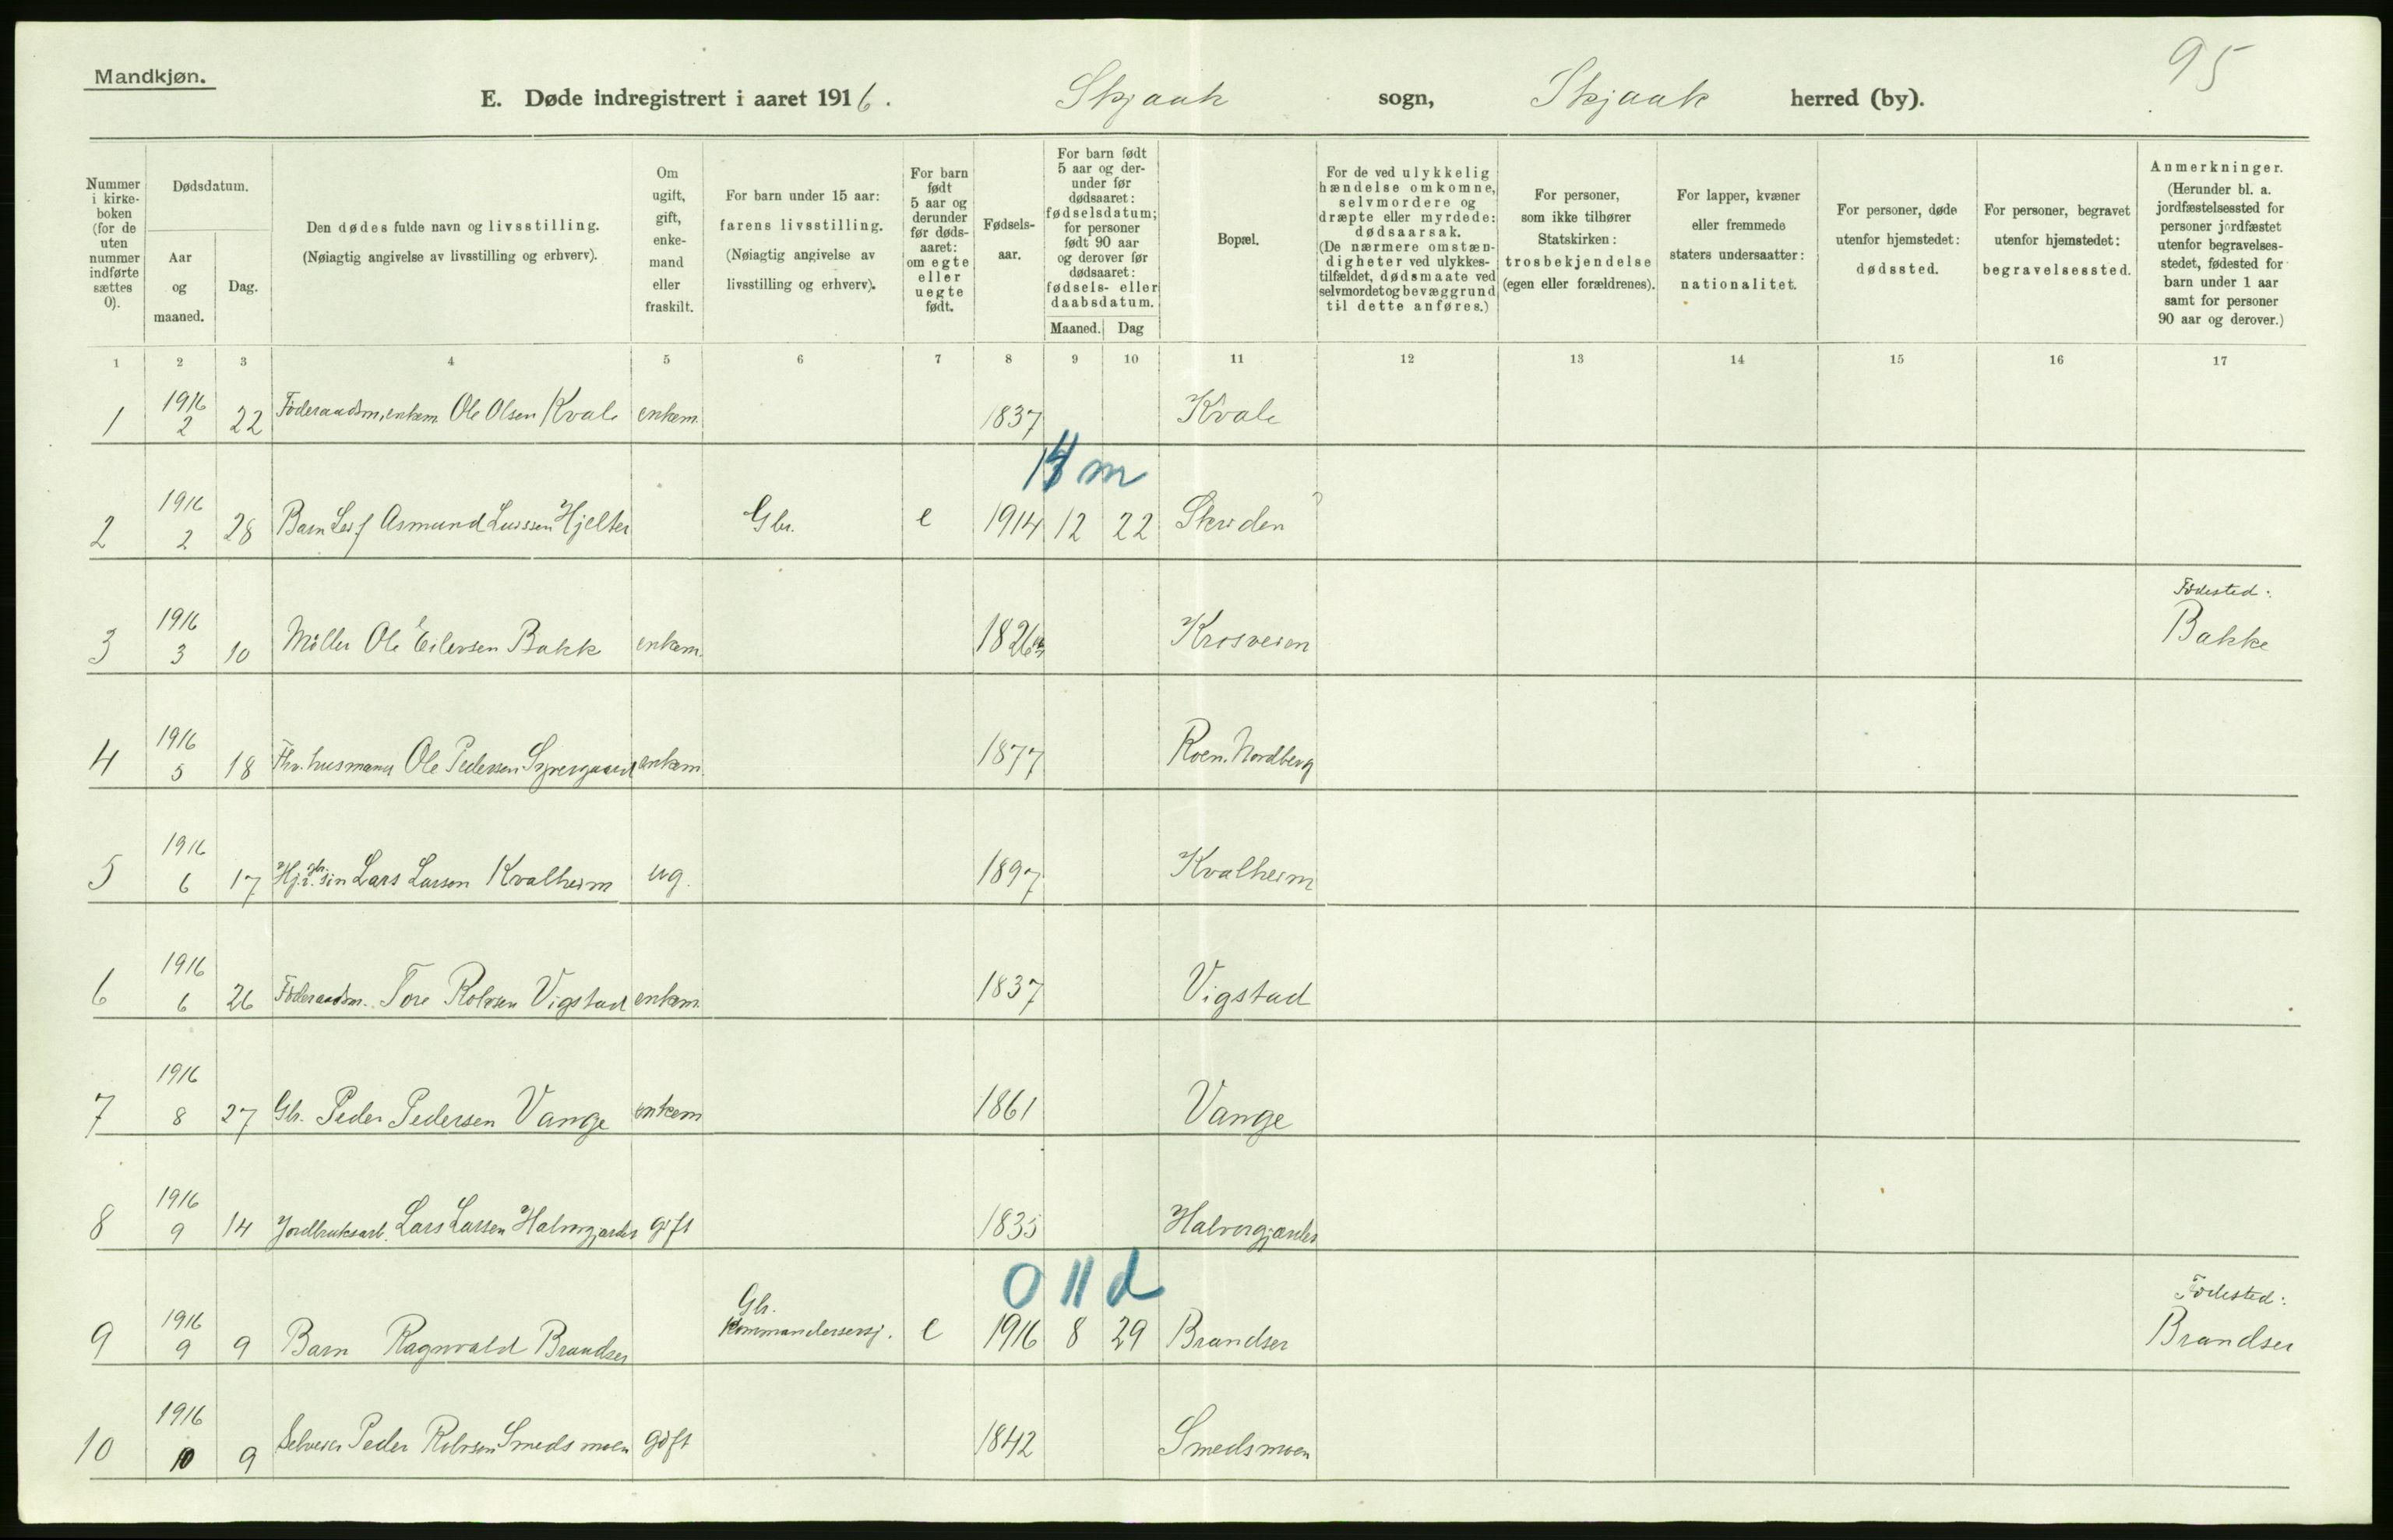 95
Mandkjøn.
E. Døde indregistrert i aaret 1916. Skjaak sogn, Skjaak herred (by).
Nummer i kirkeboken (for de uten nummer indførte sættes 0).
Dødsdatum.
Aar og maaned.
Dag.
Den dødes fulde navn og livsstilling.
(Nøiagtig angivelse av livsstilling og erhverv).
Om ugift, gift, enkemand eller fraskilt.
For barn under 15 aar: farens livsstilling.
(Nøiagtig angivelse av livsstilling og erhverv).
For barn født 5 aar og derunder før dødsaaret: om egte eller uegte født.
Fødselsaar.
For barn født 5 aar og derunder før dødsaaret: fødselsdatum; for personer født 90 aar og derover før dødsaaret: fødsels- eller daabsdatum.
Maaned. Dag
Bopæl.
For de ved ulykkelig hændelse omkomne, selvmordere og dræpte eller myrdede: dødsaarsak.
(De nærmere omstændigheter ved ulykkestilfældet, dødsmaate ved selvmordet og bevæggrund til dette anføres.)
For personer, som ikke tilhører Statskirken: trosbekjendelse (egen eller forældrenes).
For lapper, kvæner eller fremmede staters undersaatter: nationalitet.
For personer, døde utenfor hjemstedet: dødssted.
For personer, begravet utenfor hjemstedet: begravelsessted.
Anmerkninger.
(Herunder bl. a. jordfæstelsessted for personer jordfæstet utenfor begravelsesstedet, fødested for barn under 1 aar samt for personer 90 aar og derover.)
1 2 3 4 5 6 7 8 9 10 11 12 13 14 15 16 17
1 1916 2 22 Föderaadsm, enkem. Ole Olsen Kvale enkem. 1837 Kvale
m
2 1916 2 28 Barn Leif Asmund Hjelter Gbr. e 1914 12 22 Skriden
3 1916 3 10 Møller Ole Eilersen Bakke enkem. 1826 Krosveien Födested: Bakke
4 1916 5 18 husmand Ole Pedersen enkem. 1877 Roen. Nordberg
5 1916 6 17 Lars Larsen Kvalheim ug. 1897 Kvalheim
6 1916 6 26 Föderaadsm. Tore Rolvsen Vigstad enkem. 1837 Vigstad
7 1916 8 27 Gbr. Peder Pedersen Vange enkem 1861 Vange
8 1916 9 14 Jordbruksarb. Lars Larsen Halvorgjardet gift 1835 Halvorgjardet
0 11 d
9 1916 9 9 Barn Ragnvald Brandser Gbr. e 1916 8 29 Brandser Födested: Brandser
10 1916 10 9 Selveier Peder Rolvsen Smedsmoen gift 1842 Smedsmoen